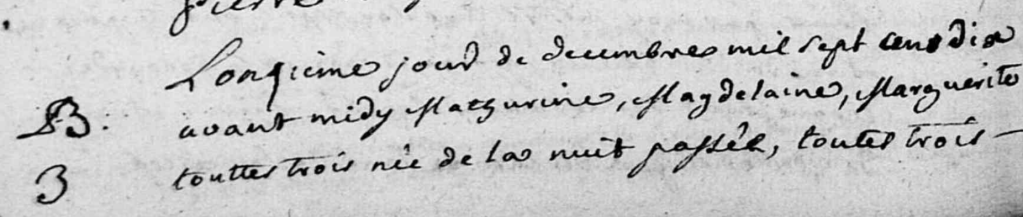 pierre
Lonzieme jour de decembre mil sept cens dix
B: avant midy Mathurine, Magdelaine, Marguerite
3 touttes trois née de la nuit passée, toutes trois